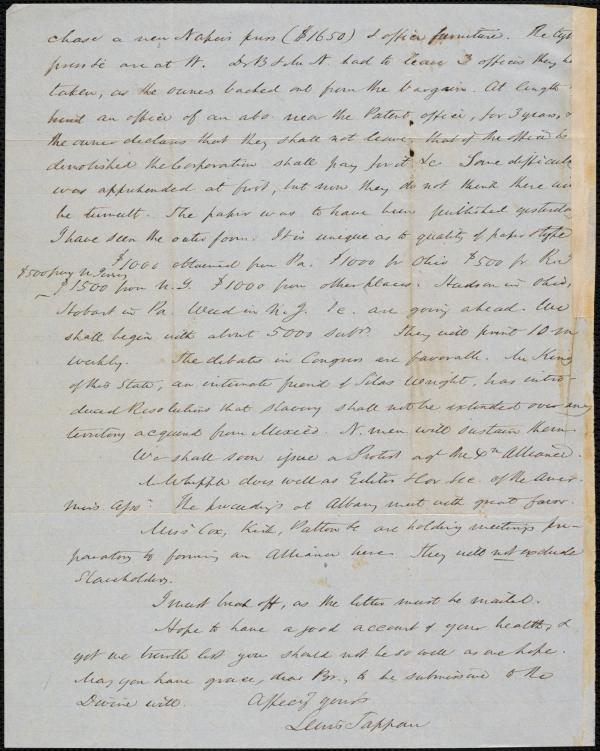 chase a new Napier press ($1650) & office furniture. The type
press &c are at W. Dr B & John N. had to leave 3 offices they had
taken, as the owners backed out from the bargain. At length
hired an office of an abo near the Patent office, for 3 years, &
the owner declares that they shall not leave, that if the office be
demolished the Corporation shall pay for it &c. Some difficulty
was apprehended at first, but now they do not think there will
be tumult. The paper was to have been published yesterday
I have seen the outer form. It is unique as to quality of paper & type
$1000 obtained from Pa. $1000 fr Ohio $500 fr R.I.
$500 from N. Jersey
$1500 from N.Y. $1000 from other places. Hudson in Ohio,
Hobart in Pa Weed in N.Y. &c. are going ahead. We
shall begin with about 5000 subs. They will print 10 m
weekly. The debates in Congress are favorable. Mr King
of this State, an intimate friend of Silas Wright, has intro-
duced Resolutions that slavery shall not be extended over any
territory acquired from Mexico. N. men will sustain them
We shall soon issue a Protest agt the Xn Alliance.
Whipple does well as Editor & Cor Sec. of the Amer.
Miss. Assn. The proceedings at Albany meet with great favor.
Messrs Cox, Kirk, Patton &c are holding meetings pre-
paratory to forming an Alliance here. They will not exclude
Slaveholders.
I must break off, as the letter must be mailed.
Hope to have a good account of your health, &
yet we tremble lest you should not be so well as we hope.
May you have grace, dear Br., to be submissive to the
Divine will. Affecy yours
Lewis Tappan